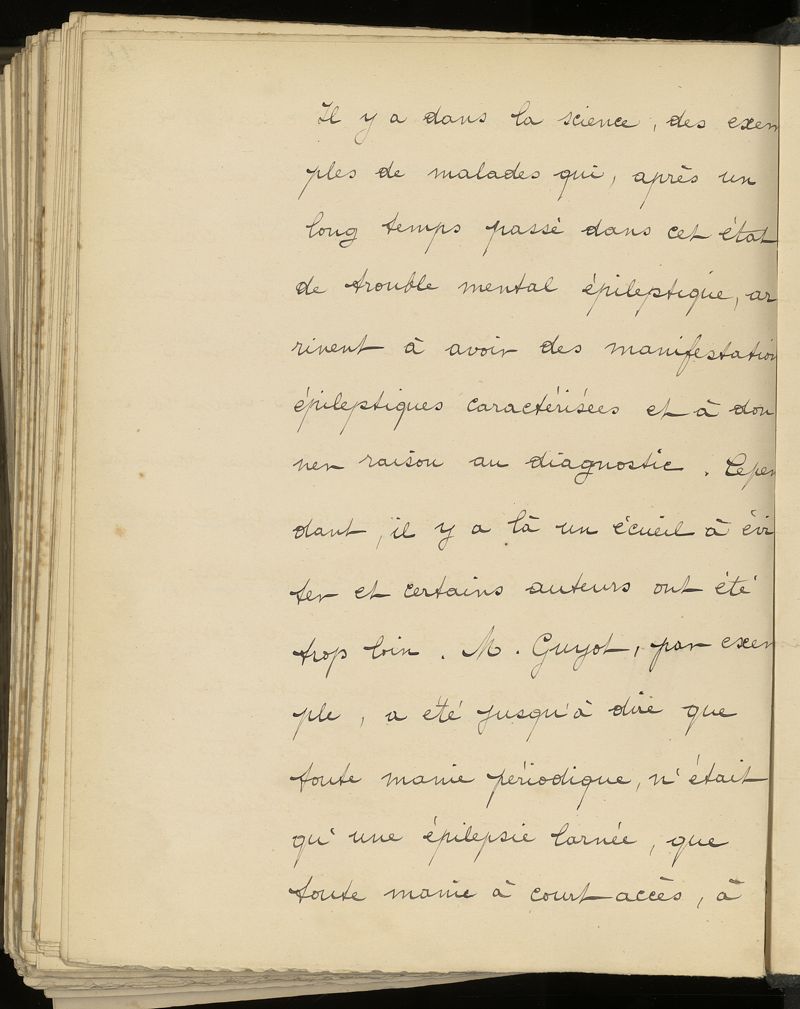 Il y a dans la science, des exem
ples de malades qui, après un
long temps passé dans cet état
de trouble mental épileptique, ar
rivent à avoir des manifestation
épileptiques caractérisées et à don
ner raison au diagnostic. Cepen
dant, il y a là un écueil à évi
ter et certains auteurs ont été
trop loin. M. Guyot, par exem
ple, a été jusqu'à dire que
toute manie périodique, n'était
qu'une épilepsie larnée, que
toute manie à court accès, à